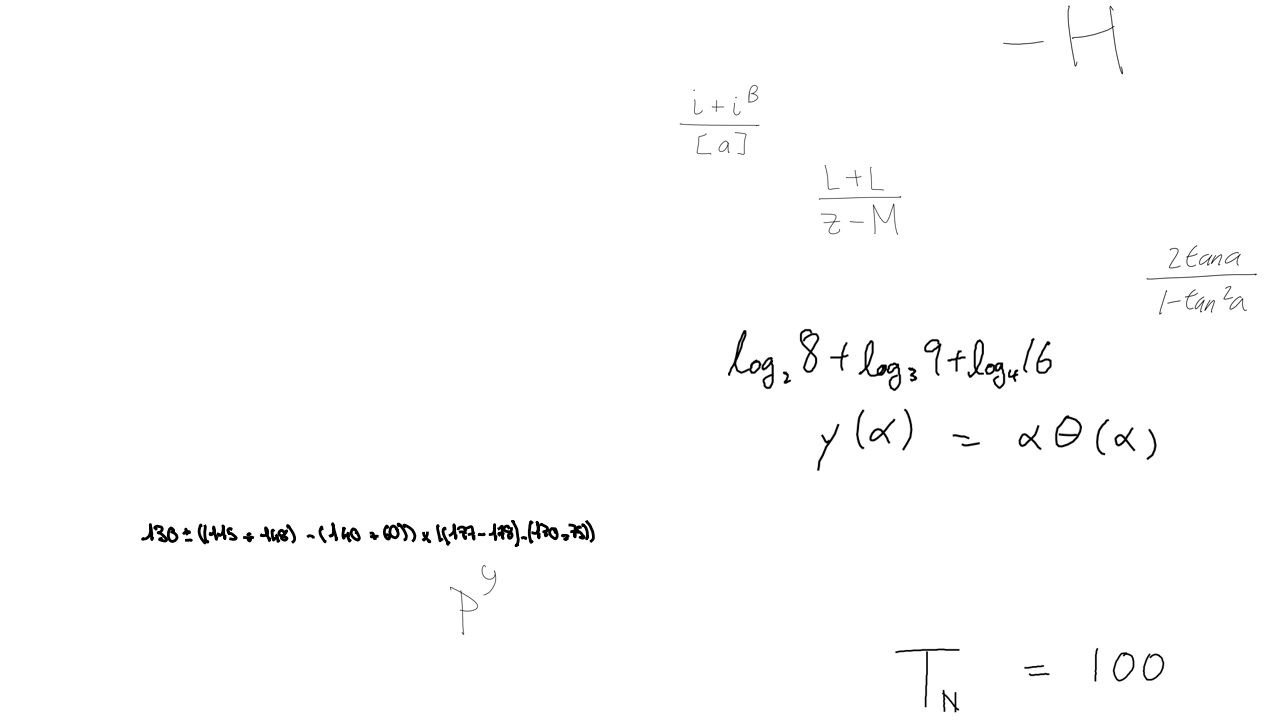 - H
\frac{i+i^{B}}{[a]}
\frac{L+L}{z-M}
\frac{2tan a}{1-tan^{2}a}
log_{2}8+log_{3}9+log_{4}16
y(α) = αθ(α)
130 ± ((115 + 148) - (140 + 60)) × ((177 - 178) - (170 - 75))
p^{y}
T_{N} = 100